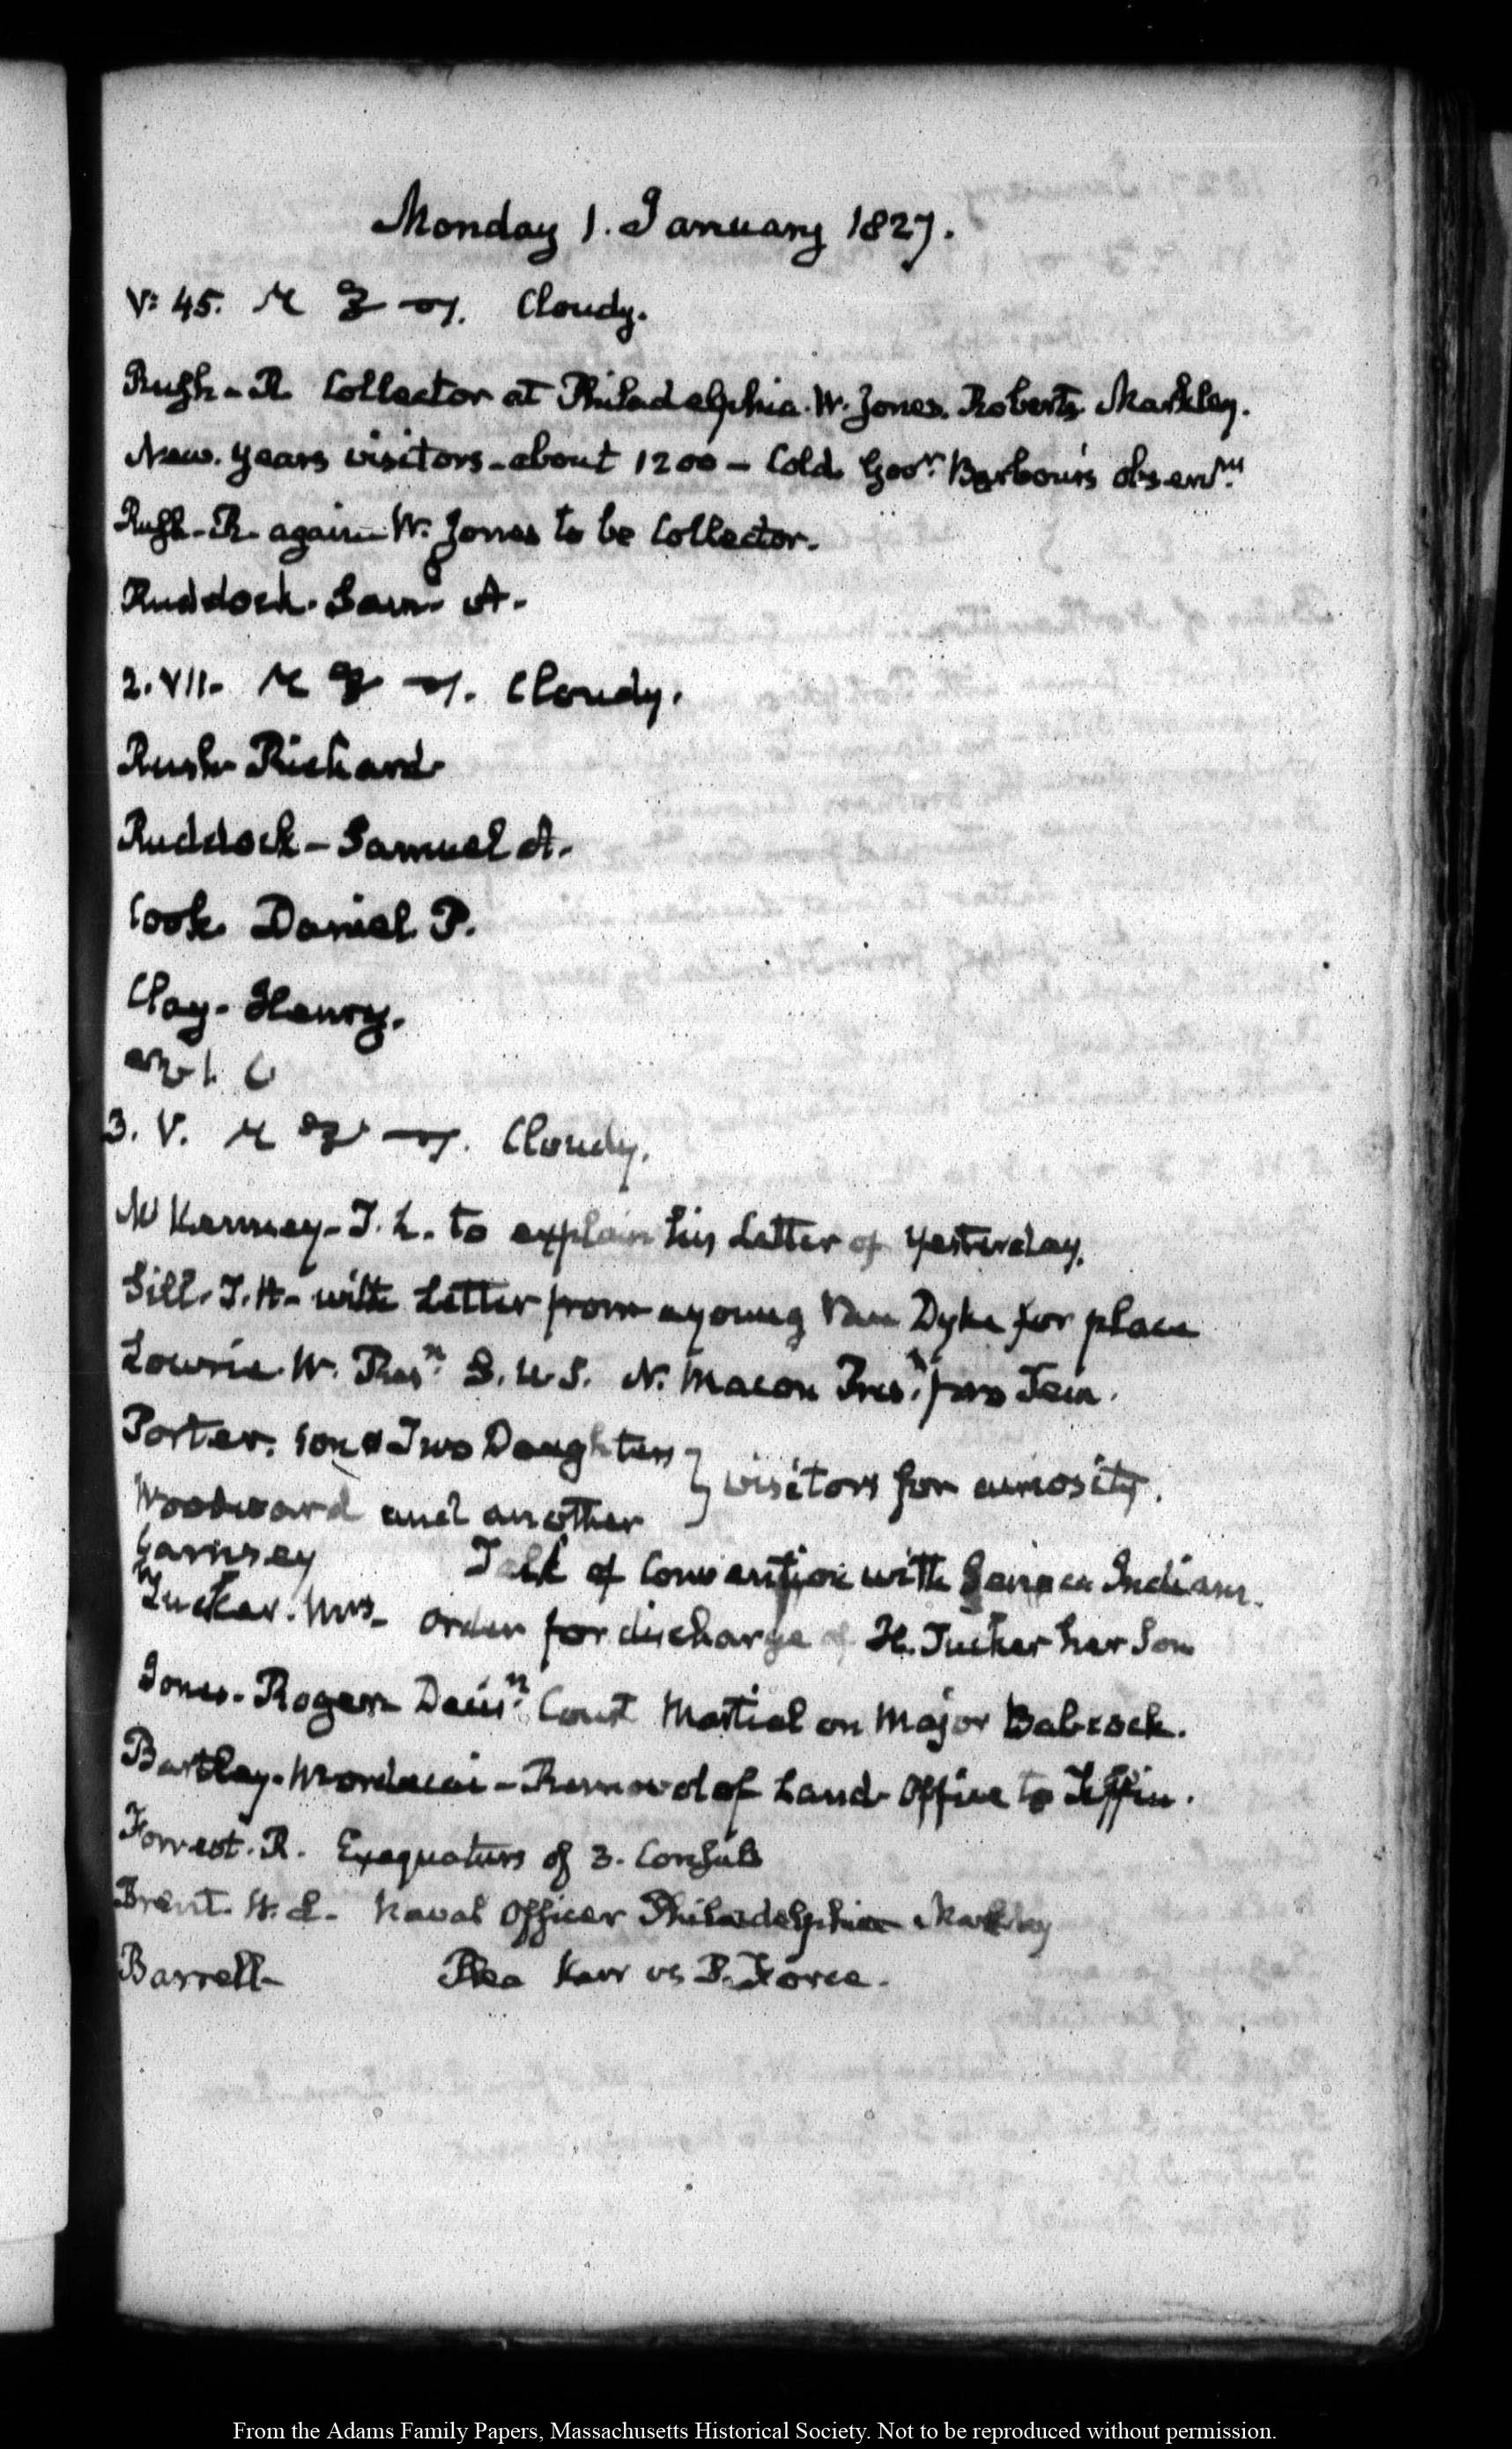 Monday 1. January 1827.
V: 45. Cloudy.
Rush - R. Collector at Philadelphia. W. Jones. Roberts. Markley.
New. Years visitors - about 1200 - Cold. Govr. Barbour's
Rush - R. again - W. Jones to be Collector.
Ruddock. Saml. A.
2. VII. Cloudy.
Rush Richard
Ruddock - Samuel A.
Cook. Daniel P.
Clay - Henry.
3. V. Cloudy.
McKenney - T. L. to explain his Letter of yesterday.
Sill. T. H. - with Letter from a young Van Dyke for place
Lowrie. W. S. U.S. N. Macon Prest. pro Tem.
Porter. Son & Two Daughters } visitors for curiosity.
Woodward and another
Garnsey Talk of Convention with Seneca Indians.
Tucker. Mrs - order for discharge of H. Tucker her Son
Jones - Roger - Court Martial on Major Babcock.
Bartley - Mordecai - Removal of Land Office to Tiffin.
Forrest. R. Exequaturs of 3. Consuls
Brent. W. L. Naval Officer Philadelphia Markley
Barrell - Rea Kerr vs P. Force.
From the Adams Family Papers, Massachusetts Historical Society. Not to be reproduced without permission.